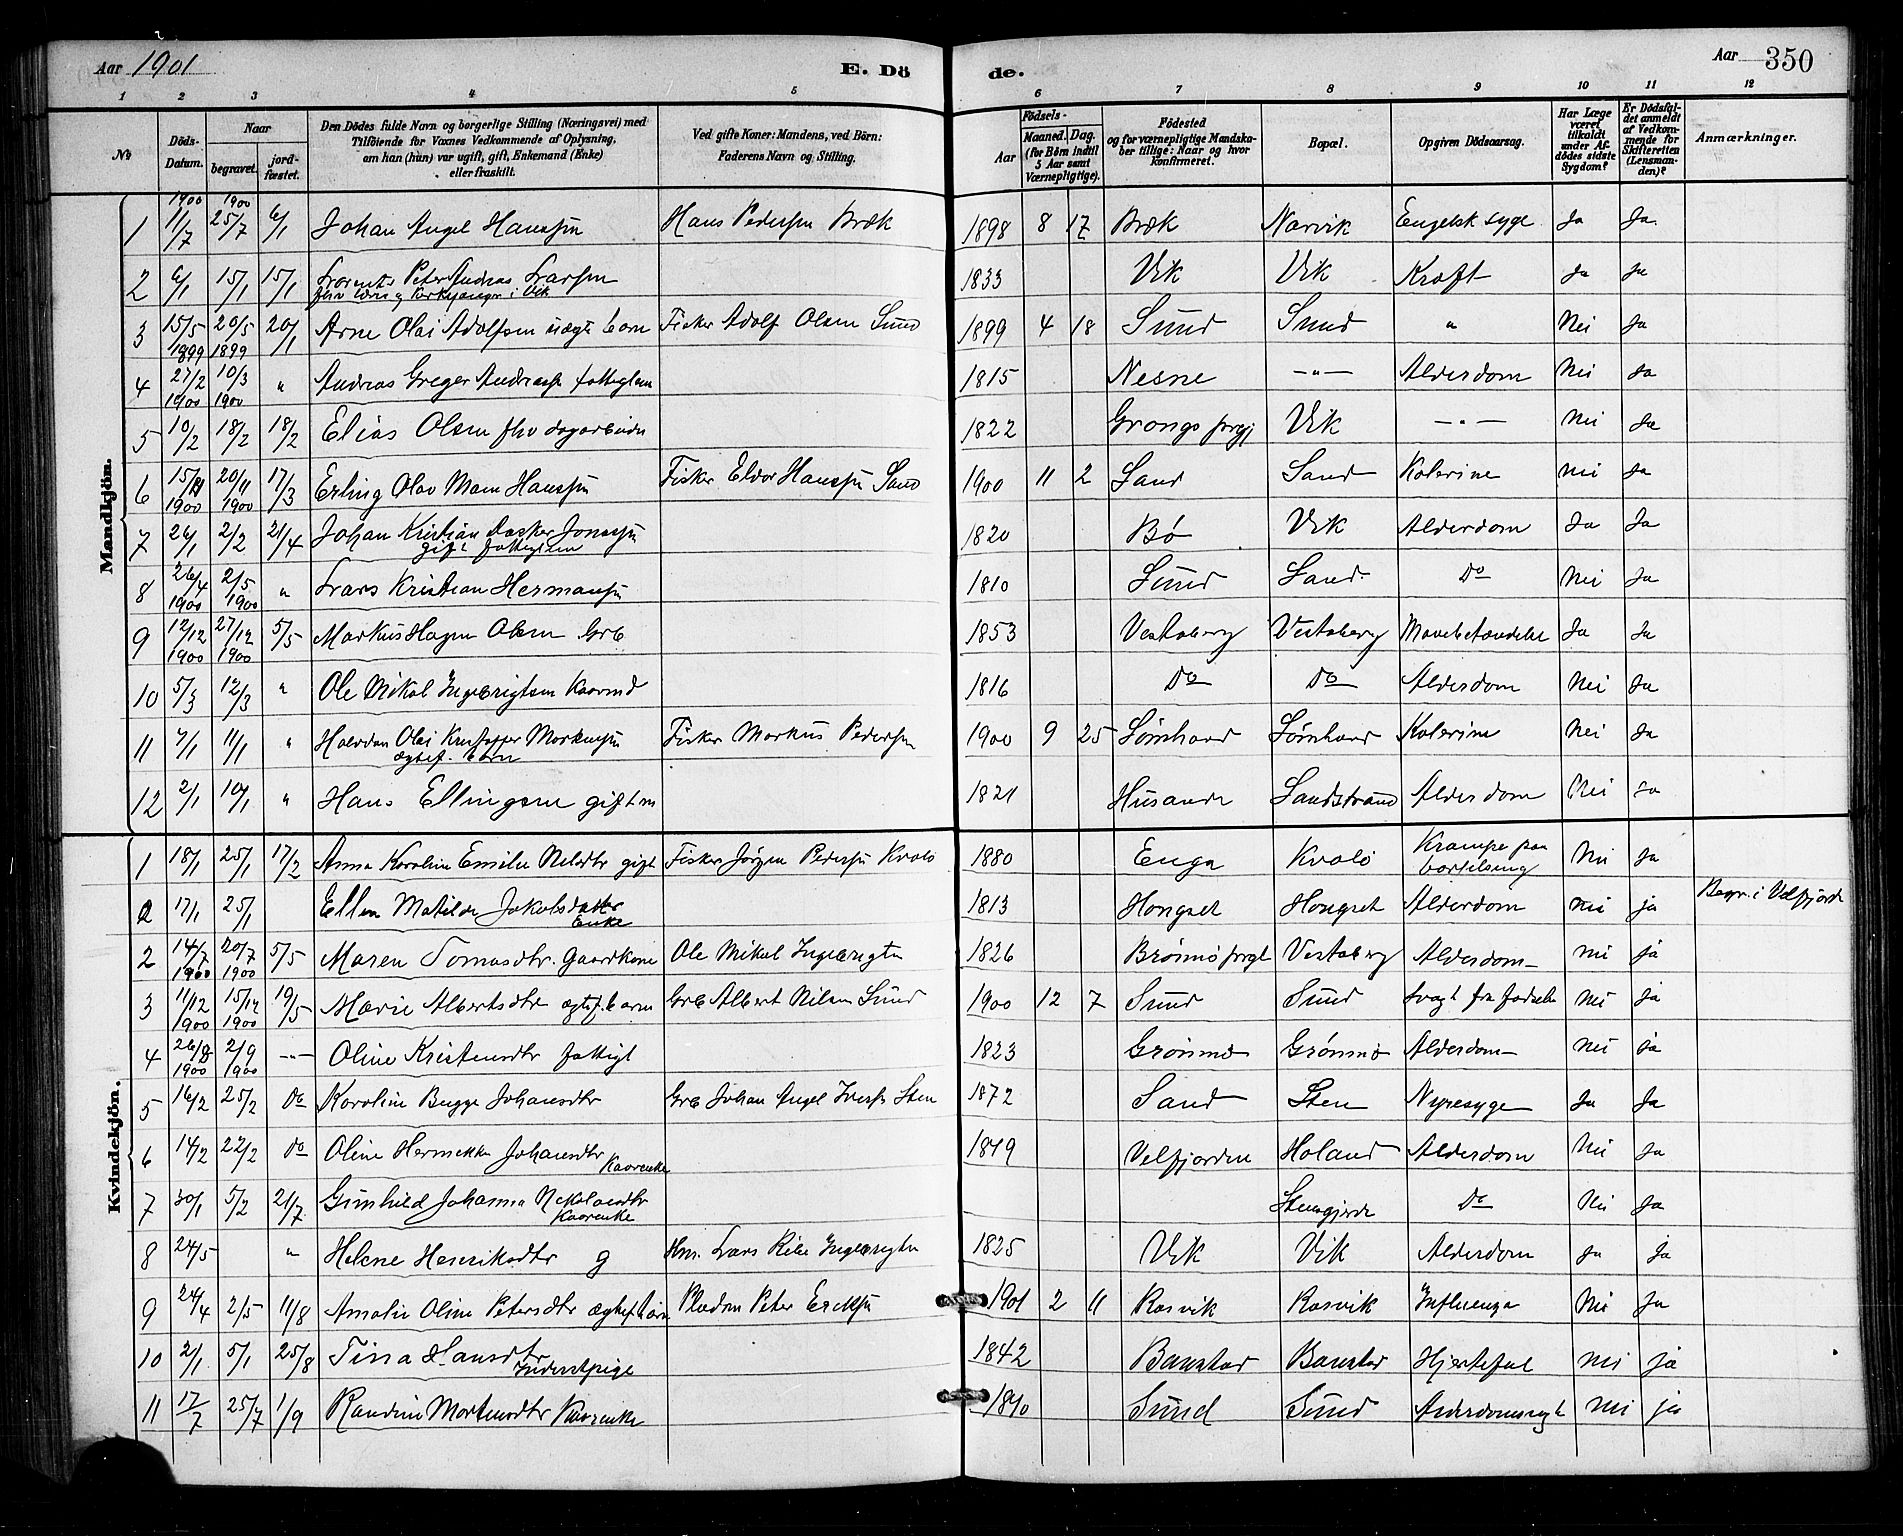 Aar 1901
E. Dö
de.
Aar 350
1 2 3 4 5 6 7 8 9 10 11 12
No
Döds-Datum.
Naar begravet. jordfæstet.
Den Dödes fulde Navn og borgerlige Stilling (Næringsvei) med
Tilföiende for Voxnes Vedkommende af Oplysning,
om han (hun) var ugift, gift, Enkemand (Enke)
eller fraskilt.
Ved gifte Koner: Mandens, ved Börn:
Faderens Navn og Stilling.
Födsels-
Aar Maaned. Dag.
(for Börn indtil 5 Aar samt Værnepligtige).
Födested
og for værnepligtige Mandskaber tillige: Naar og hvor konfirmeret.
Bopæl.
Opgiven Dödsaarsag.
Har Læge været tilkaldt under Afdödes sidste Sygdom?
Er Dödsfaldet anmeldt af Vedkommende for Skifteretten (Lensmanden)?
Anmærkninger.
Mandkjön.
1 1900 11/7 1900 25/7 6/1 Johan Angel Hanssen Hans Pedersen Bræk 1898 8 17 Bræk Narvik Engelsk syge Ja Ja
2 6/1 15/1 15/1 Lorents Peter Andreas Larsen 1833 Vik Vik Kræft Ja Ja
i Vik
3 15/5 1899 20/5 1899 20/1 Arne Olai Adolfsen uægte barn Fisker Adolf Olsen Sund 1899 4 18 Sund Sund " Nei Ja
4 27/2 1900 10/3 1900 " Andreas Greger Andreass fatteglem 1815 Nesne —"— Alderdom Nei Ja
5 10/2 18/2 18/2 Elias Olsen fhv dagarbeider 1822 Grongs prgj Vik —"— Nei Ja
6 15/11 1900 20/11 1900 17/3 Erling Olav Hanssen Fisker Eldor Hanssen Sand 1900 11 2 Sand Sand Kolerine Nei Ja
7 26/1 2/2 21/4 Johan Kristian Jonssen 1820 Bø Vik Alderdom Ja Ja
gift fatteglem
8 26/4 1900 2/5 1900 " Lars Kristian Hermansen 1810 Sund Sand Do Nei Ja
9 12/12 1900 27/12 1900 5/5 Markus Hagen Olsen Grb 1853 Vestaberg Vestaberg Mavebetændelse Ja Ja
10 5/3 12/3 " Ole Mikal Ingebrigtsen Kaarmd 1816 Do Do Alderdom Nei Ja
11 7/1 11/1 " Halvdan Olai Kristoffer Markussen Fisker Markus Pedersen 1900 9 25 Sømhovd Sømhovd Kolerine Nei Ja
ægtef. barn
12 2/1 10/1 " Hans Ellingsen gift m 1821 Husande Sandstrand Alderdom Nei Ja
Kvindekjön.
1 18/1 25/1 17/2 Anna Karoline Emilie Nilsdtr gift Fisker Jörgen Pedersen Kvalö 1880 Enga Kvalö Krampe paa barselseng Nei Ja
2 17/1 25/1 Ellen Matilde Jakobsdatter 1813 Hongset Hongset Alderdom Nei ja Begr. i Velfjorden
Enke
2 14/7 1900 20/7 1900 5/5 Maren Tomasdtr. Gaardkone Ole Mikal Ingebrigtsn 1826 Brønnø prgl Vestaberg Alderdom Nei ja
3 11/12 1900 15/12 1900 19/5 Marie Albertsdtr ægtef. barn Grb Albert Nilsen Sund 1900 12 7 Sund Sund Svagt fra fødselen Nei ja
4 26/8 1900 2/9 1900 —"— Oline Kristensdtr fattigl 1823 Grönmo Grönmo Alderdom Nei ja
5 16/2 25/2 Do Karoline Bugge Johansdtr Grb Johan Angel Iversen Sten 1872 Sand Sten Nyresyge Ja Ja
6 14/2 22/2 Do Oline Hermikke Johansdtr 1819 Velfjorden Holand Alderdom Nei Ja
Kaarenke
7 30/1 5/2 21/7 Gunhild Johanna Nekolaidtr Do Nei Ja
Kaarenke
8 24/5 " Helene Henriksdtr g Lars Ingebrigtn 1825 Vik Vik Alderdom Ja Ja
9 24/4 2/5 11/8 Amalie Oline Petersdtr ægtef. barn Pladsm Peter Ericksen 1901 2 11 Rosvik Rosvik Influenza Nei Ja
10 2/1 5/1 25/8 Tina Hansdtr 1842 Banstad Banstad Hjertefeil Nei ja
Inderstpige
11 17/7 25/7 1/9 Randine Mortensdtr Kaarenke 1810 Sund Sund Alderdomssvagt Nei ja